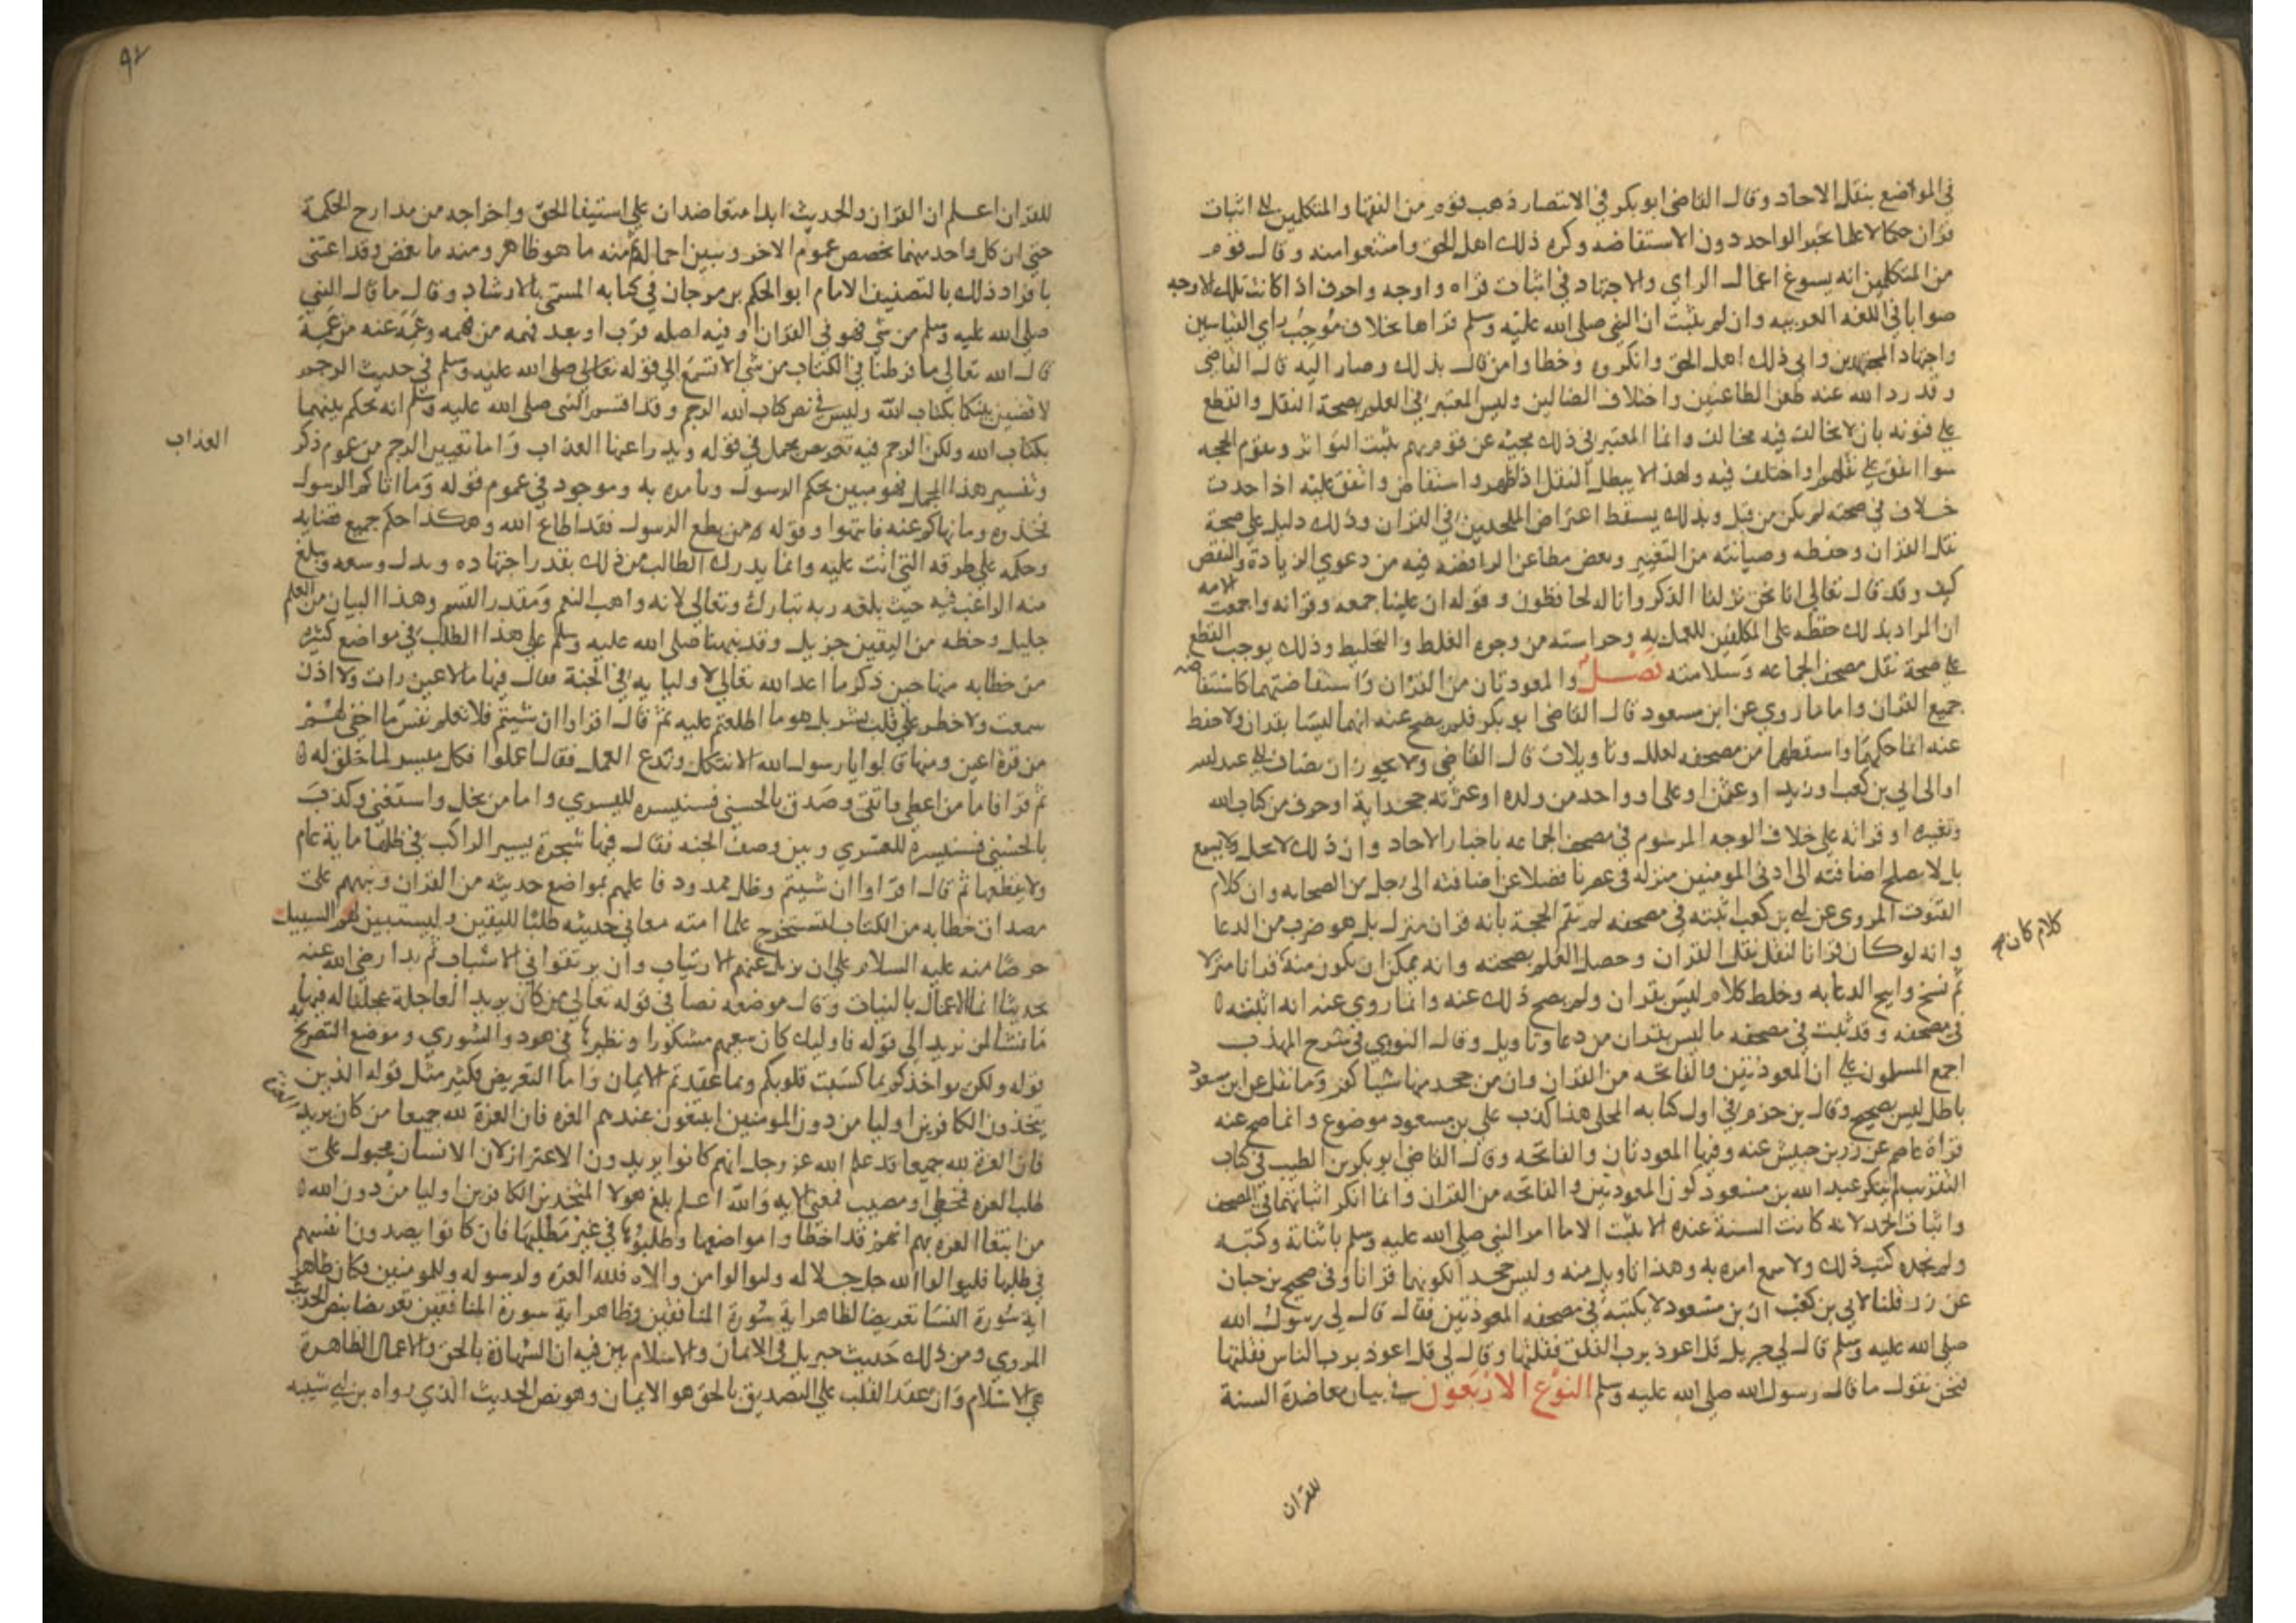 في المواضع بنقل الاحاد وقال القاضي ابو بكر في الانتصار ذهب قوم من الفقها والمتكلمين الي اثبات
قران حكما لا علما بخبر الواحد دون الاستفاضه وكره ذلك اهل الحق وامتنعوا منه وقال قوم
من المتكلمين انه يسوغ اعمال الراي والاجتهاد في اثبات قراه واوجه واحرف اذا كانت تلك الاوجه
صوابا في اللغه العربيه وان لم يثبت ان النبي صلى الله عليه وسلم قراها بخلاف موجب راي القياسين
واجتهاد المجتهدين وابي ذلك اهل الحق وانكروه وخطاوا من قال بذلك وصار اليه قال القاضي
وقد رد الله عنه طعن الطاعنين واختلاف الضالين وليس المعتبر في العلم بصحة النقل والقطع
علي فنونه بان لا يخالف فيه مخالف وانما المعتبر في ذلك مجيه عن قوم بهم يثبت التواتر وتقوم الحجه
سوا اتفق علي نقلهم او اختلف فيه ولهذا لا يبطل النقل اذا ظهر واستفاض واتفق عليه اذا حدث
خلاف في صحته لم يكن من قبل وبذلك يسقط اعتراض الملحدين في القران وذلك دليل علي صحة
نقل القران وحفظه وصيانته من التغيير وبعض مطاعن الرافضه فيه من دعوي الزيادة والنقص
كيف وقد قال تعالي انا نحن نزلنا الذكر وانا له لحافظون وقوله ان علينا جمعه وقرانه واجمعت الامه
ان المراد بذلك حفظه على المكلفين للعمل به وحراسته من وجوه الغلط والتخليط وذلك يوجب القطع
علي صحة نقل مصحف الجماعه وسلامته فصل والمعوذتان من القران واستفاضتهما كاستفاضه
جميع القران واما ما روي عن ابن مسعود قال القاضي ابو بكر فلم يصح عنه انهما ليسا بقران ولا حفظ
عنه انما حكهما واسقطهما من مصحفه لعلل وتاويلات قال القاضي ولا يجوز ان يضاف الي عبد الله
او الى ابي بن كعب او زيد او عثمن او علي او واحد من ولده او عترته جحد اية او حرف من كتاب الله
وتغييره او قراته على خلاف الوجه المرسوم في مصحف الجماعه باخبار الاحاد وان ذلك لا يحل ولا يسمع
بل لا يصلح اضافته الى ادنى المومنين منزله في عصرنا فضلا عن اضافته الى رجل من الصحابه وان كلام
القنوت المروي عن ابي بن كعب اثبته في مصحفه لم تقم الحجة بانه قران منزل بل هو ضرب من الدعا
وانه لو كان قرانا لنقل نقل القران وحصل العلم بصحته وانه يمكن ان يكون منه قرانا منزلا
كلام كان صح
ثم نسخ وابيح الدعا به وخلط كلام ليس بقران ولم يصح ذلك عنه وانما روي عنه انه اثبته ه
في مصحفه وقد ثبت في مصحفه ما ليس بقران من دعا وتاويل وقال النووي في شرح المهذب
اجمع المسلمون علي ان المعوذتين والفاتحه من القران وان من جحد منها شيا كفر وما نقل عن ابن مسعود
باطل ليس بصحيح وقال بن حزم في اول كتابه المحلى هذا كذب علي بن مسعود موضوع وانما صح عنه
قراة عاصم عن زر بن حبيش عنه وفيها المعوذتان والفاتحه وقال القاضي ابو بكر بن الطيب في كتاب
التقريب لم ينكر عبد الله بن مسعود كون المعوذتين والفاتحه من القران وانما انكر اثباتهما في المصحف
واثبات الحمد لانه كانت السنة عنده الا يثبت الا ما امر النبي صلى الله عليه وسلم باثباته وكتبه
ولم يجده كتب ذلك ولا سمع امره به وهذا تاويل منه وليس جحدا لكونهما قرانا وفي صحيح بن حبان
عن زر قلنا لابي بن كعب ان بن مسعود لا يكتب في مصحفه المعوذتين فقال قال لي رسول الله
صلى الله عليه وسلم قال لي جبريل قل اعوذ برب الفلق فقلتها وقال لي قل اعوذ برب الناس فقلتها
فنحن نقول ما قال رسول الله صلى الله عليه وسلم النوع الاربعون في بيان معاضدة السنة
للقران
٩٢
للقران اعلم ان القران والحديث ابدا متعاضدان علي استيفا الحق واخراجه من مدارج الحكمة
حتى ان كل واحد منهما يخصص عموم الاخر ويبين اجماله ثم منه ما هو ظاهر ومنه ما يغمض وقد اعتنى
بافراد ذلك بالتصنيف الامام ابو الحكم بن برجان في كتابه المسمى بالارشاد وقال ما قال النبي
صلى الله عليه وسلم من شي فهو في القران او فيه اصله قرب او بعد فهمه من فهمه وعمه عنه من عمه
قال الله تعالى ما فرطنا في الكتاب من شي الا تسمع الي قوله تعالى صلى الله عليه وسلم في حديث الرجم
لاقضين بينكما بكتاب الله وليس في نص كتاب الله الرجم وقد اقسم النبي صلى الله عليه وسلم انه يحكم بينهما
بكتاب الله ولكن الرجم فيه تعريض مجمل في قوله ويدرا عنها العذاب واما تعيين الرجم من عموم ذكر
العذاب
وتفسير هذا المجمل فهو مبين بحكم الرسول وبامره به وموجود في عموم قوله وما اتاكم الرسول
فخذوه وما نهاكم عنه فانتهوا وقوله من يطع الرسول فقد اطاع الله وهكذا حكم جميع قضايه
وحكمه علي طرقه التي اتت عليه وانما يدرك الطالب من ذلك بقدر اجتهاده وبذل وسعه ويبلغ
منه الراغب فيه حيث بلغه ربه تبارك وتعالي لانه واهب النعم ومقدر القسم وهذا البيان من العلم
جليل وحظه من اليقين جزيل وقد نبهنا صلى الله عليه وسلم علي هذا الطلب في مواضع كثيره
من خطابه منها حين ذكر ما اعد الله تعالي لاوليايه في الجنة فقال فيها ما لا عين رات ولا اذن
سمعت ولا خطر علي قلب بشر بله ما اطلعتم عليه ثم قال اقراوا ان شيتم فلا تعلم نفس ما اخفي لهم
من قرة اعين ومنها قالوا يا رسول الله الا نتكل وندع العمل فقال اعملوا فكل ميسر لما خلق له ه
ثم قرا فاما من اعطى واتقى وصدق بالحسنى فسنيسره لليسري واما من بخل واستغنى وكذب
بالحسنى فسنيسره للعسري وبين وصف الجنه فقال فيها شجرة يسير الراكب في ظلها ماية عام
ولا يقطعها ثم قال اقراوا ان شيتم وظل ممدود فاعلمهم بمواضع حديثه من القران ونبههم على
مصداق خطابه من الكتاب ليستخرج علما امته معاني حديثه طلبا لليقين وليستبين لهم السبيل
حرصا منه عليه السلام علي ان يزيل عنهم الارتياب وان يرتقوا في الاسباب ثم بدا رضي الله عنه
بحديث انما الاعمال بالنيات وقال موضعه نصا في قوله تعالي من كان يريد العاجلة عجلنا له فيها
ما نشا لمن نريد الي قوله فاوليك كان سعيهم مشكورا ونظيرها في هود والشوري وموضع التصريح به
قوله ولكن يواخذكم بما كسبت قلوبكم وبما عقدتم الايمان واما التعريض فكثير مثل قوله الذين
يتخذون الكافرين اوليا من دون المومنين ايبتغون عندهم العزه فان العزة لله جميعا من كان يريد
فان العزة لله جميعا قد علم الله عز وجل انهم كانوا يريدون الاعتزاز لان الانسان مجبول على
طلب العزه فمخطي او مصيب فمعنى الايه والله اعلم بلغ هولا المتخذين الكافرين اوليا من دون الله ه
من ابتغا العزه بهم انهم قد اخطاوا مواضعها وطلبوها في غير مطلبها فان كانوا يصدون انفسهم
في طلبها فليوالوا الله جل جلاله وليوالوا من والاه فلله العزه ولرسوله وللمومنين فكان ظاهر
اية سورة النسا تعريضا لظاهر اية سورة المنافقين وظاهر اية سورة المنافقين تعريضا بنص الحديث
المروي ومن ذلك حديث جبريل في الايمان والاسلام بين فيه ان الشهادة بالحق والاعمال الظاهرة
هي الاسلام وان عقد القلب علي التصديق بالحق هو الايمان وهو نص الحديث الذي رواه بن ابي شيبه